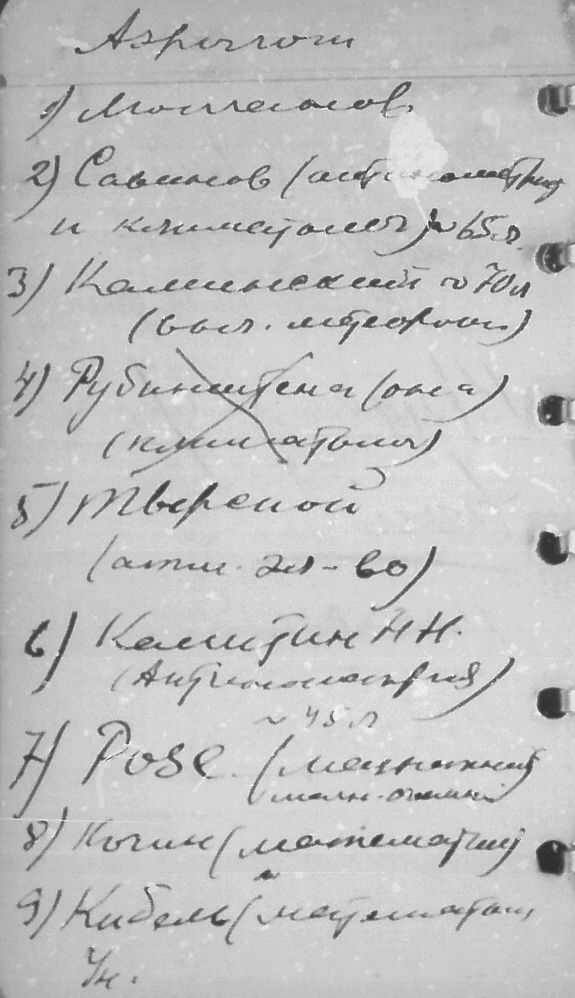 Аэрологи
1) Молчанов
2) Савинов (актинометрия
и климатолог) ~ 65 л.
3) Каминский ~ 70 л
(выс. метеоролог)
4) Рубинштейна (она)
(климатолог)
5) Тверской
(атм. эл-во)
6) Калитин Н Н.
(Актинометрия)
~ 45 л
7) Розе (механик
8) Кочин (математик)
9) Кибель (математик